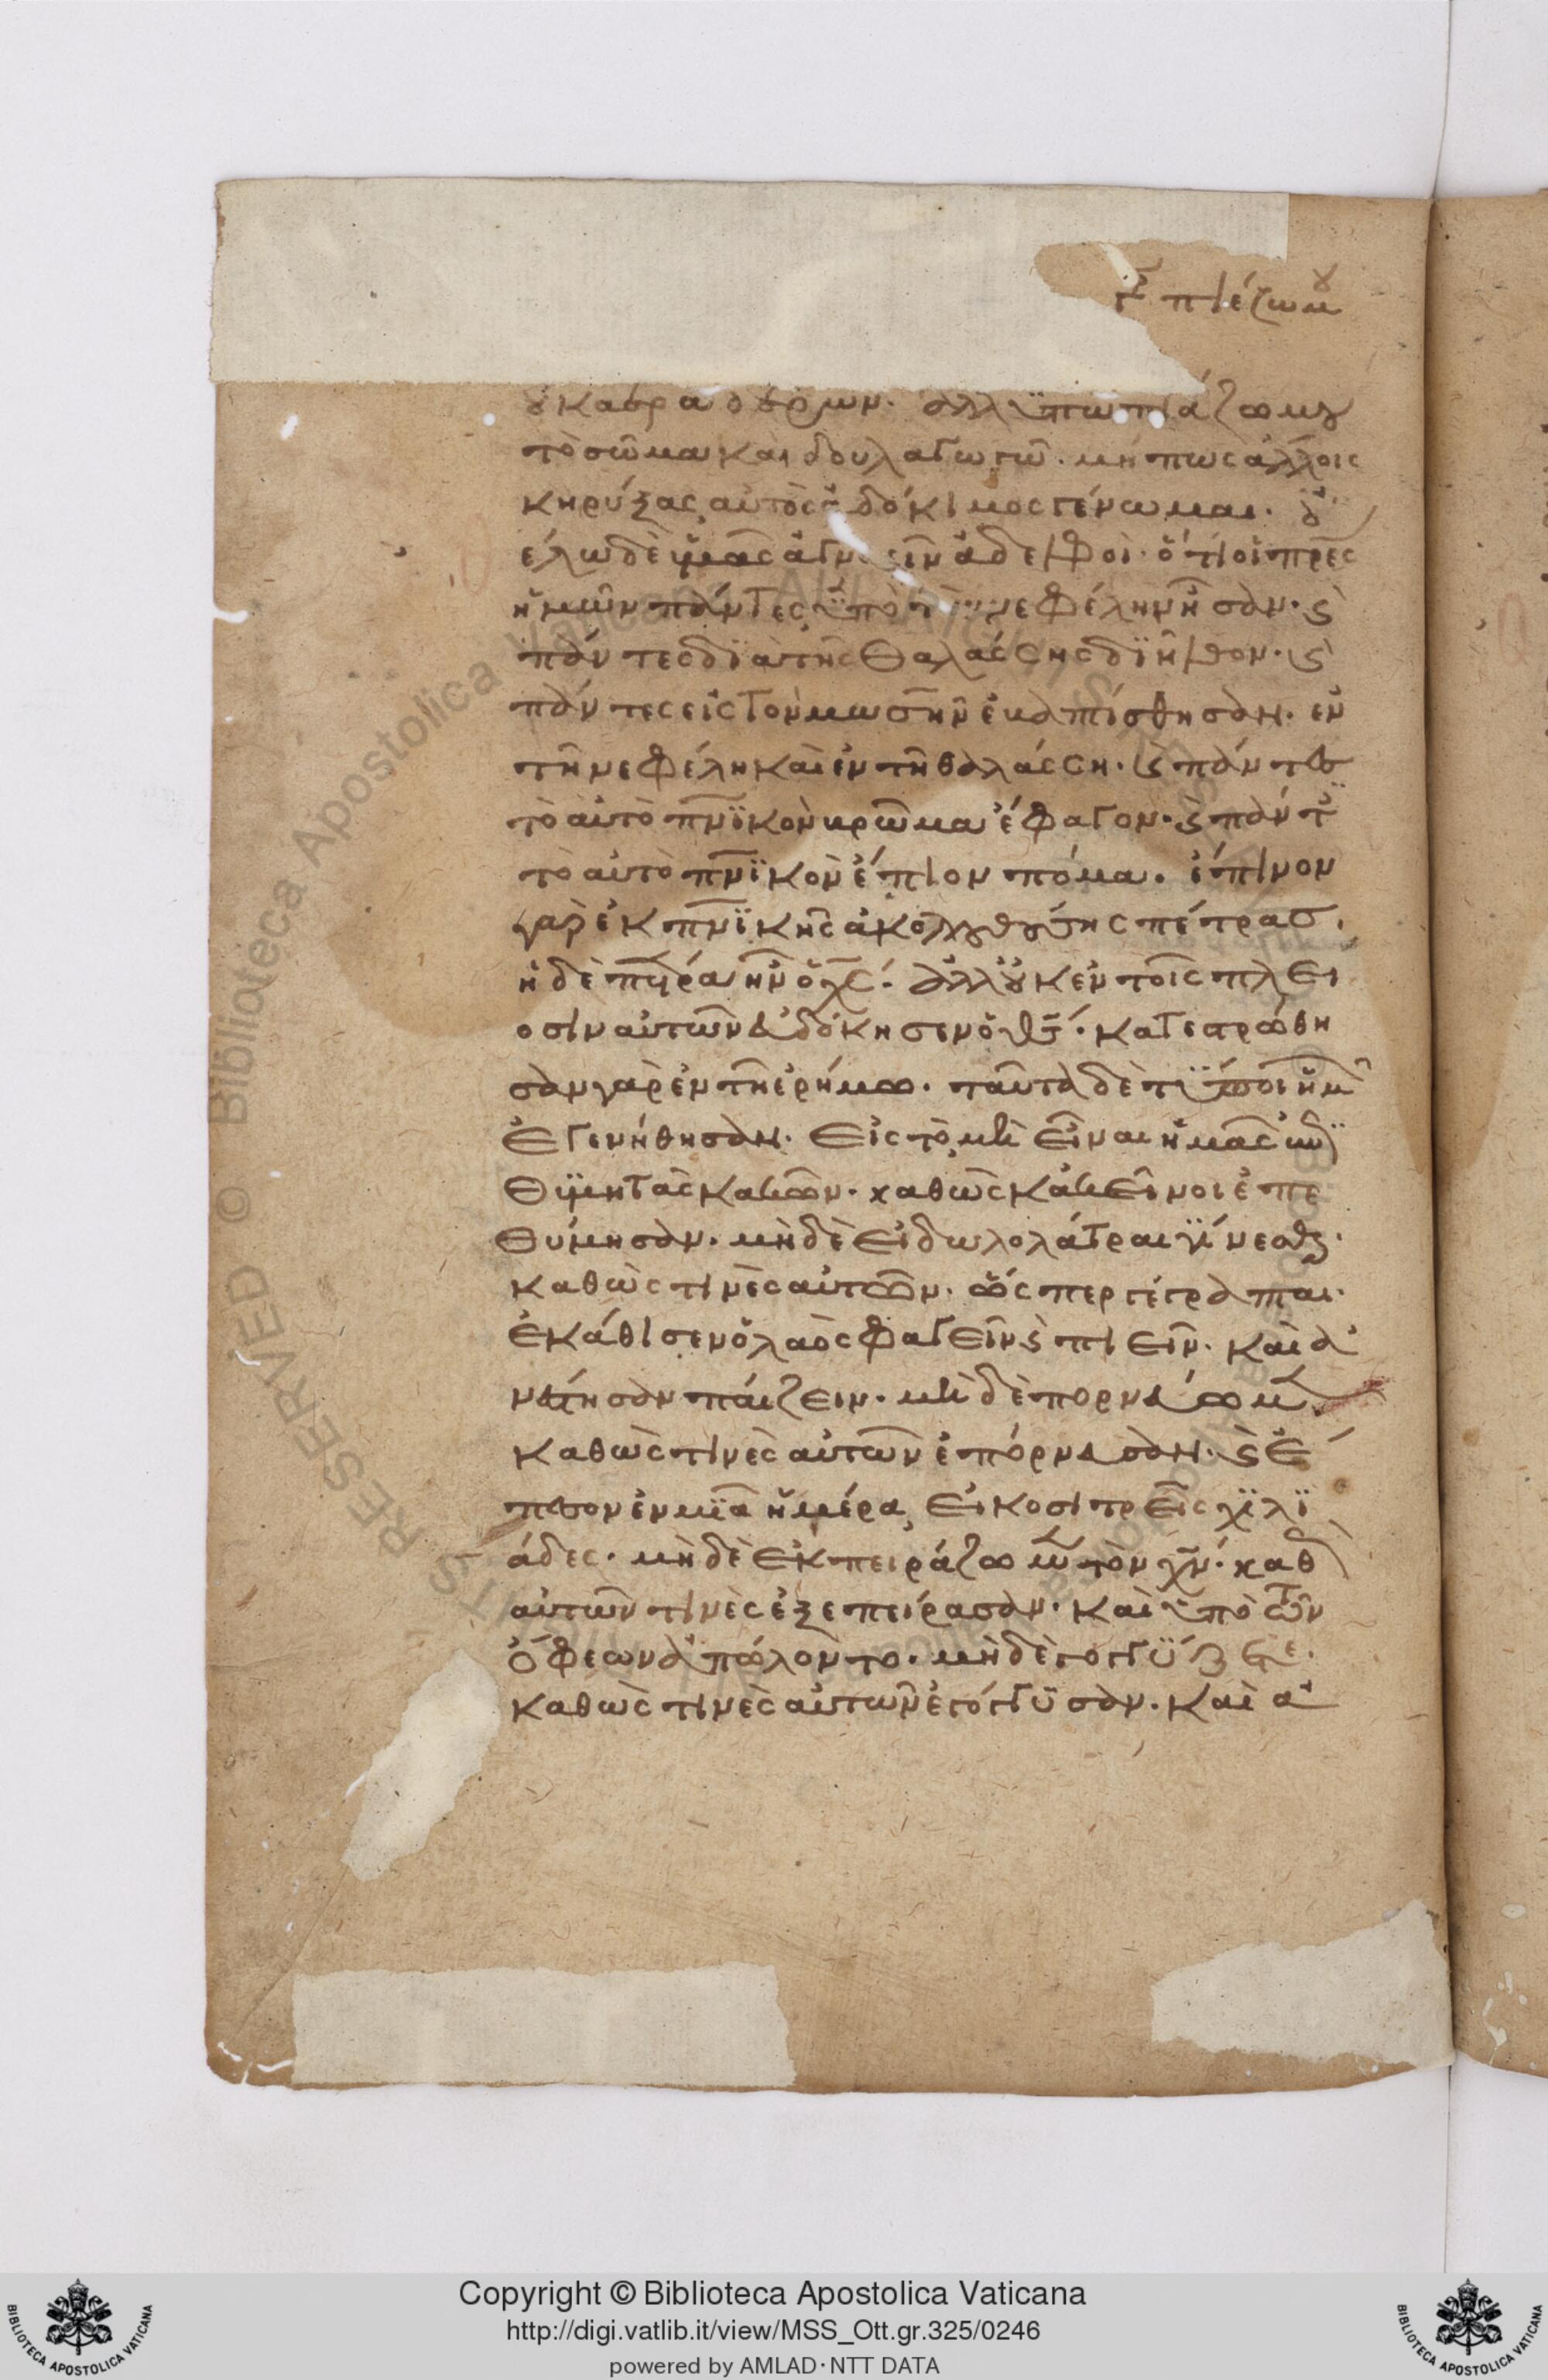 πιέζω
οὐκ ἀέρα δέρων· ἀλλ' ὑπωπιάζω μου
τὸ σῶμα καὶ δουλαγωγῶ· μήπως ἄλλοις
κηρύξας αὐτὸς ἀδόκιμος γένωμαι· οὐ
θέλω δὲ ὑμᾶς ἀγνοεῖν ἀδελφοί· ὅτι οἱ πρες
ἡμῶν πάντες ὑπὸ τὴν νεφέλην ἦσαν· ϛ
πάντες διὰ τῆς θαλάσσης διῆλθον· ϛ
πάντες εἰς τὸν μωσῆν ἐβαπτίσθησαν· ἐν
τῆ νεφέλη καὶ ἐν τῆ θαλάσση· ϛ πάντες
τὸ αὐτὸ πνικὸν βρῶμα ἔφαγον· ϛ πάντ
τὸ αὐτὸ πνικὸν ἔπιον πόμα· ἔπινον
γὰρ ἐκ πνικῆς ἀκολουθούσης πέτρας·
ἡ δὲ πέτρα ἦν ὁ χς· ἀλλ' οὐκ ἐν τοῖς πλεί
οσιν αὐτῶν εὐδόκησεν ὁ θς· κατεστρώθη
σαν γὰρ ἐν τῆ ἐρήμω· ταῦτα δὲ τύποι ἡμ
ἐγενήθησαν· εἰς τὸ μὴ εἶναι ἡμᾶς ἐπι
θυμητὰς κακῶν· καθὼς κἀκεῖνοι ἐπε
θύμησαν· μὴ δὲ εἰδωλολάτραι γίνεσθε·
καθὼς τινὲς αὐτῶν· ὥσπερ γέγραπται·
ἐκάθισεν ὁ λαὸς φαγεῖν ϛ πιεῖν· καὶ ἀ
νέστησαν παίζειν· μὴ δὲ πορνεύωμ
καθὼς τινὲς αὐτῶν ἐπόρνευσαν· ϛ ἔ
πεσον ἐν μιᾶ ἡμέρα εἰκοσιτρεῖς χιλι
άδες· μὴ δὲ ἐκπειράζωμεν τὸν χν· καθ
αὐτῶν τινὲς ἐξεπείρασαν· καὶ ὑπὸ τῶν
ὄφεων ἀπώλοντο· μὴ δὲ γογγύζετε·
καθὼς τινὲς αὐτῶν ἐγόγγυσαν· καὶ ἀ
BIBLIOTECA APOSTOLICA VATICANA
Copyright © Biblioteca Apostolica Vaticana
http://digi.vatlib.it/view/MSS_Ott.gr.325/0246
powered by AMLAD·NTT DATA
BIBLIOTECA APOSTOLICA VATICANA